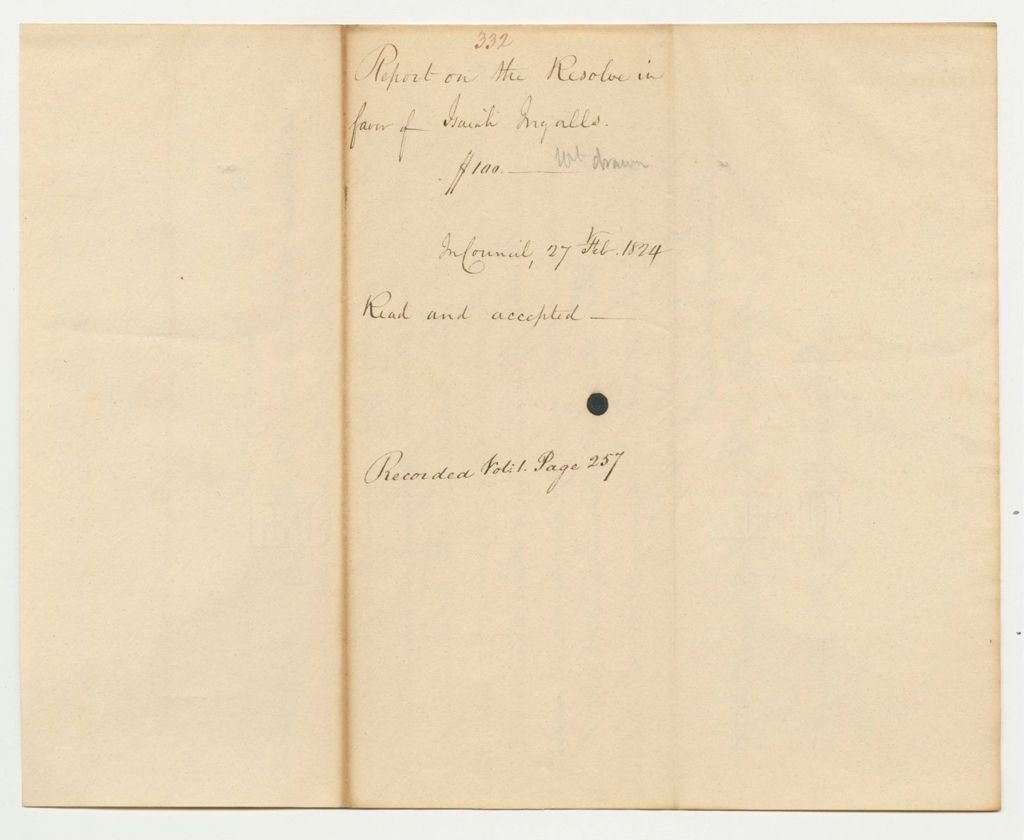 332
Report on the Resolve in
favor of Isaiah Ingalls.
$100.— Wt drawn
In Council, 27 Feb. 1824
Read and accepted —
Recorded Vol: 1. Page 257